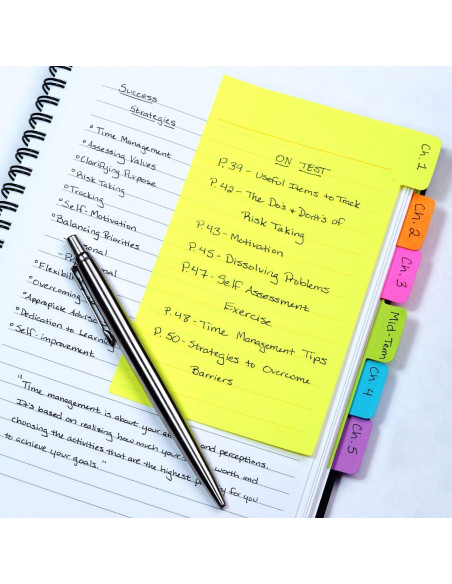 Success
Strategies
°Time Management
°Assessing Values
°Clarifying Purpose
°Risk Taking
°Tracking
°Self-Motivation
°Balancing Priorities
°Flexibil
°Overcoming
°Appropiate Advise
°Dedication to Learnin
°Self-improvement
"Time management is about your and perceptions.
It's based on realizing how much your worth and
choosing the activities that are the highest for you
to achieve your goals."
ON TEST
P.39-Useful Items to Track
P.42-The Do's & Dont's of
Risk Taking
P.43-Motivation
P.45-Dissolving Problems
P.47-Self Assessment
Exercise
P.48-Time Management Tips
P.50-Strategies to Overcome
Barriers
Ch. 1
Ch. 2
Ch. 3
Mid-Term
Ch. 4
Ch. 5